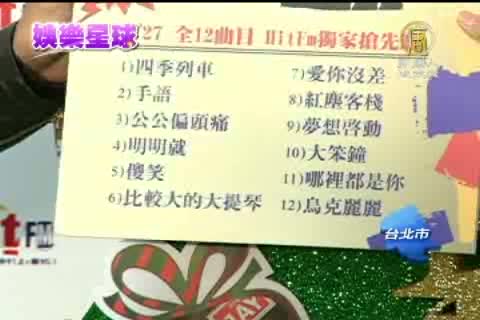 娛樂星球
/27 全12曲目 HitFm獨家搶先
1)四季列車
2)手語
3)公公偏頭痛
4)明明就
5)傻笑
6)比較大的大提琴
7)愛你沒差
8)紅塵客棧
9)夢想啓動
10)大笨鐘
11)哪裡都是你
12)烏克麗麗
台北市
t FM